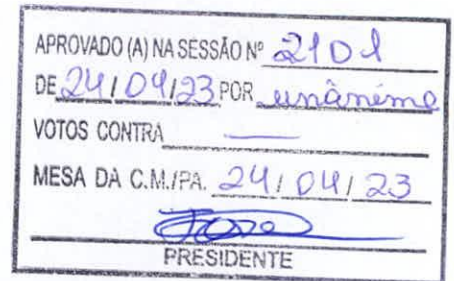 APROVADO (A) NA SESSÃO Nº 2101
DE 24/04/23 POR unânime
VOTOS CONTRA —
MESA DA C.M./PA. 24/04/23
PRESIDENTE